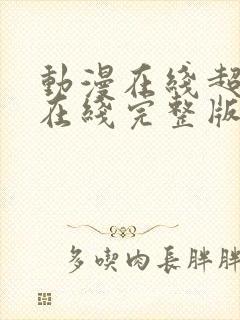 動漫在綫超
在綫完整版
多喫肉長胖胖